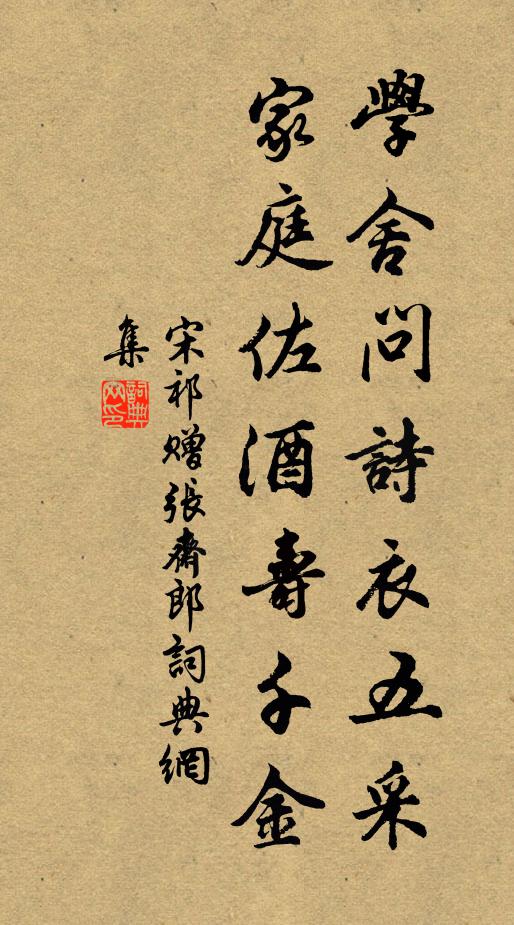 學舍問詩衣五采
家庭佐酒壽千金
宋祁贈張齋郎詞典網
集
詞典
网印